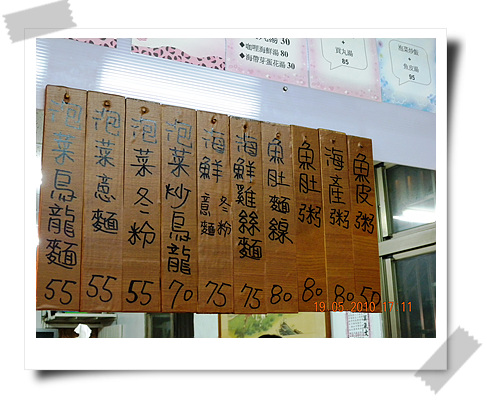 湯 30
◆咖哩海鮮湯 80
◆海帶芽蛋花湯 30
+
貢丸湯
85
泡菜炒飯
+
魚皮湯
95
泡菜烏龍麵 55
泡菜意麵 55
泡菜冬粉 55
泡菜炒烏龍 70
海鮮意麵冬粉 75
海鮮雞絲麵 75
魚肚麵線 80
魚肚粥 80
海產粥 80
魚皮粥 50
19.05.2010 17:11